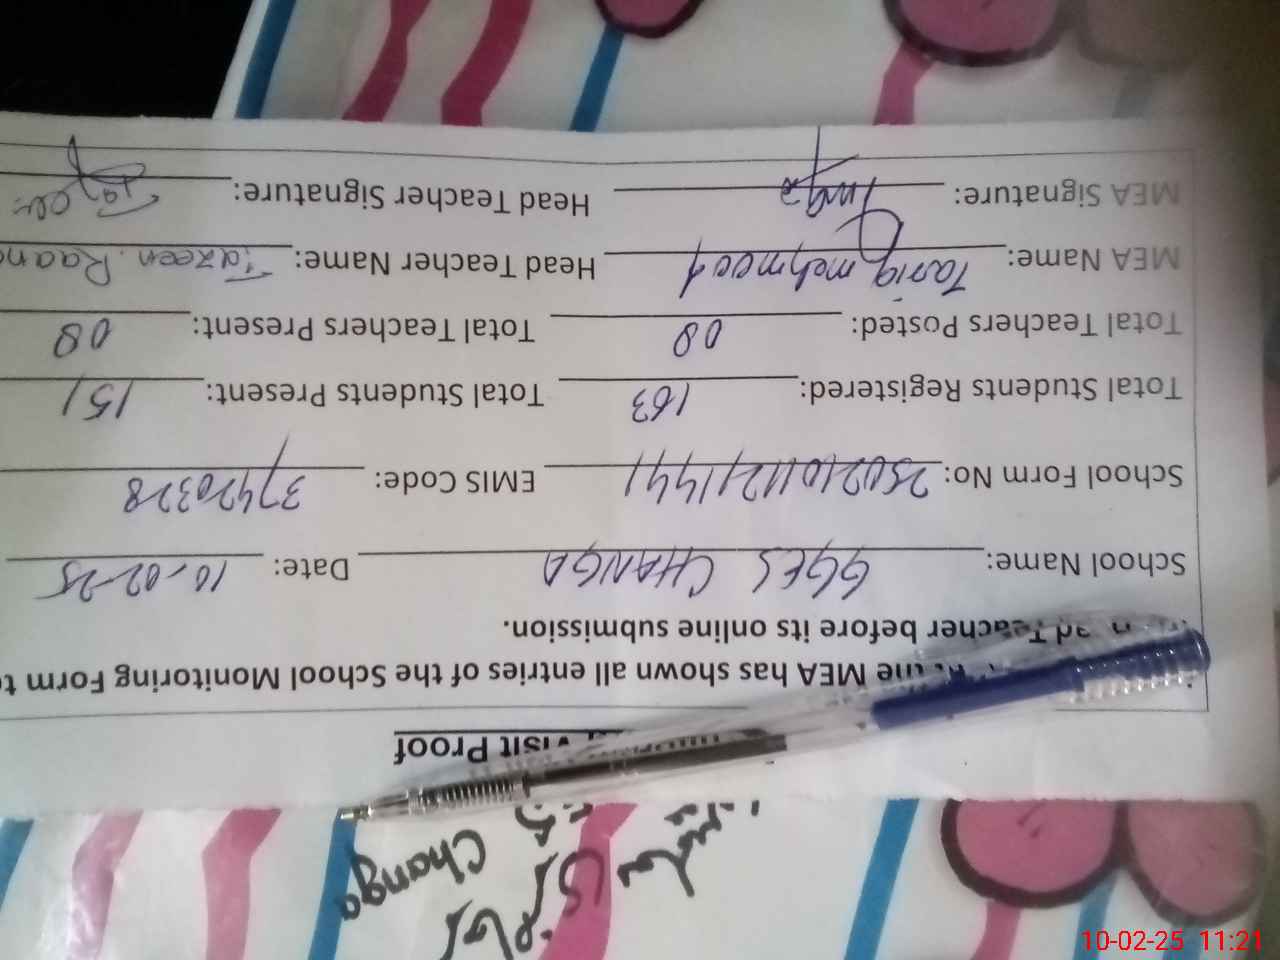 Visit Proof
the MEA has shown all entries of the School Monitoring Form t
Teacher before its online submission.
School Name: GGES CHANGA Date: 10-02-25
School Form No: EMIS Code: 37420328
Total Students Registered: 163 Total Students Present: 151
Total Teachers Posted: 08 Total Teachers Present: 08
MEA Name: Tariq mehmood Head Teacher Name: Tazeen Raan
MEA Signature: Head Teacher Signature:
Changa
10-02-25 11:21